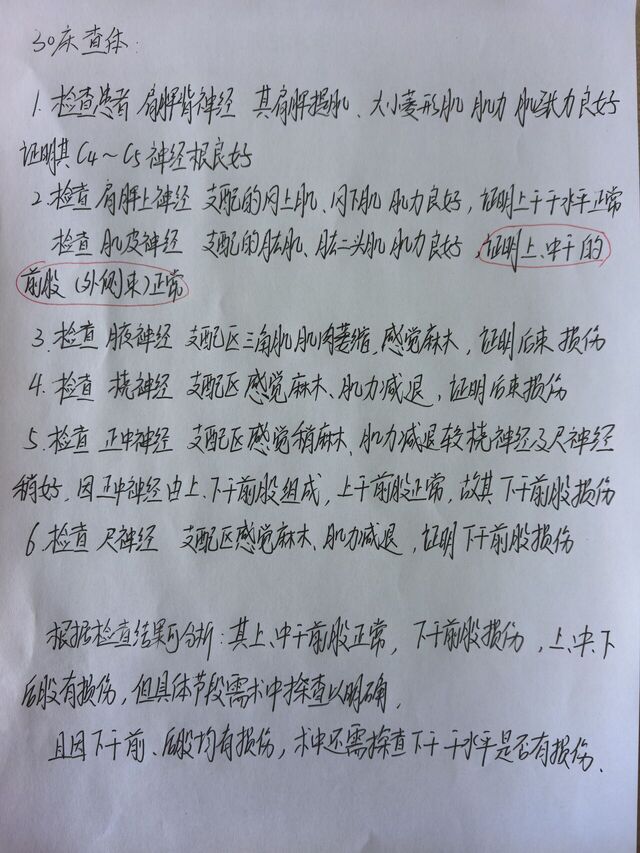 30床查体:
1. 检查患者 肩胛背神经 其肩胛提肌、大小菱形肌 肌力 肌张力良好
证明其 C4~C5 神经根良好
2. 检查 肩胛上神经 支配的冈上肌、冈下肌 肌力良好,证明上干干水平正常
检查 肌皮神经 支配的肱肌、肱二头肌 肌力良好,证明上、中干的
前股(外侧束)正常
3. 检查 腋神经 支配区三角肌肌肉萎缩、感觉麻木,证明后束 损伤
4. 检查 桡神经 支配区 感觉麻木、肌力减退,证明后束损伤
5. 检查 正中神经 支配区感觉稍麻木、肌力减退较桡神经及尺神经
稍好,因正中神经由上、下干前股组成,上干前股正常,故其下干前股损伤
6. 检查 尺神经 支配区感觉麻木、肌力减退,证明下干前股损伤
根据检查结果可分析:其上、中干前股正常,下干前股损伤,上、中、下
后股有损伤,但具体节段需术中探查以明确,
且因下干前、后股均有损伤,术中还需探查下干干水平是否有损伤、